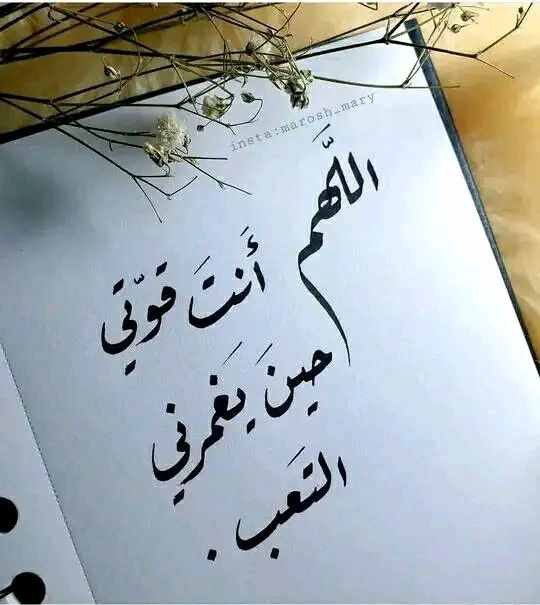 insta:marosh_mary
اللَّهم أَنتَ قوّتي
حينَ يَغمرني
التعَب.